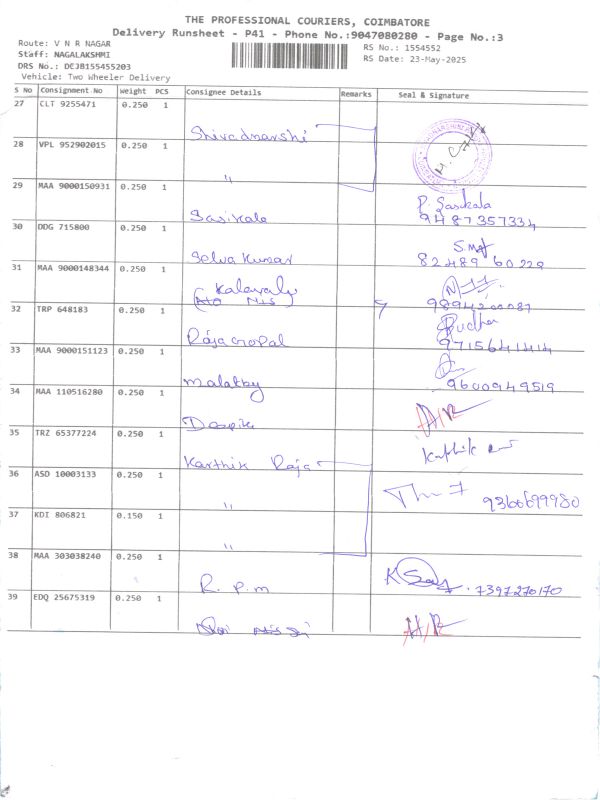 THE PROFESSIONAL COURIERS, COIMBATORE
Delivery Runsheet - P41 - Phone No.:9047080280 - Page No.:3
Route: V N R NAGAR
RS No.: 1554552
Staff: NAGALAKSHMI
RS Date: 23-May-2025
DRS No.: DEJB155455203
Vehicle: Two Wheeler Delivery
S No Consignment.No Weight PCS Consignee Details Remarks Seal & Signature
27 CLT 9255471 0.250 1
28 VPL 952902015 0.250 1
"
29 MAA 9000150931 0.250 1
Sasikala P. Sasikala
9487357334
30 DDG 715800 0.250 1
Selva Kumar
82489 60229
31 MAA 9000148344 0.250 1
9894200087
32 TRP 648183 0.250 1
RajaGopal
9715641414
33 MAA 9000151123 0.250 1
malathy 9600949519
34 MAA 110516280 0.250 1
35 TRZ 65377224 0.250 1
Karthik Raja
36 ASD 10003133 0.250 1
" 9360699980
37 KDI 806821 0.150 1
"
38 MAA 303038240 0.250 1
R. P. m 7397270170
39 EDQ 25675319 0.250 1